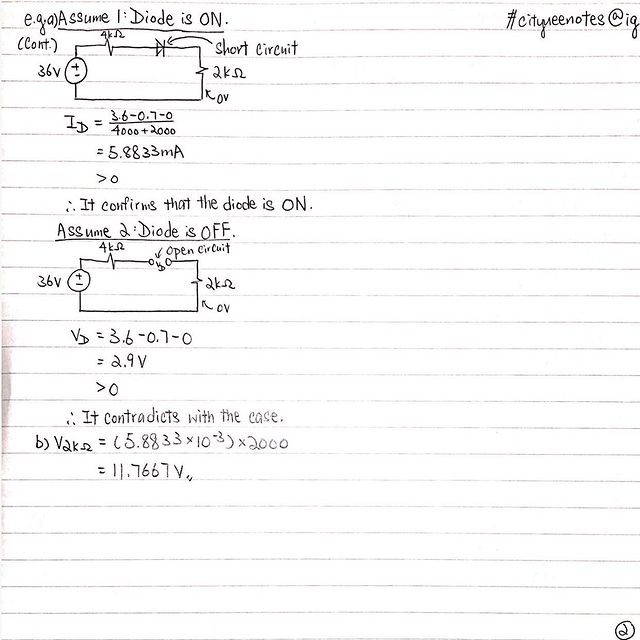 e.g.a) Assume 1: Diode is ON.
#cityueenotes@ig
(Cont.)
4kΩ
short circuit
36V
+
−
2kΩ
0V
I_D = (3.6-0.7-0)/(4000+2000)
= 5.8833mA
>0
∴ It confirms that the diode is ON.
Assume 2: Diode is OFF.
4kΩ
open circuit
V_D
36V
+
−
2kΩ
0V
V_D = 3.6-0.7-0
= 2.9V
>0
∴ It contradicts with the case.
b) V_2kΩ = (5.8833×10^-3)×2000
= 11.7667V,,
2